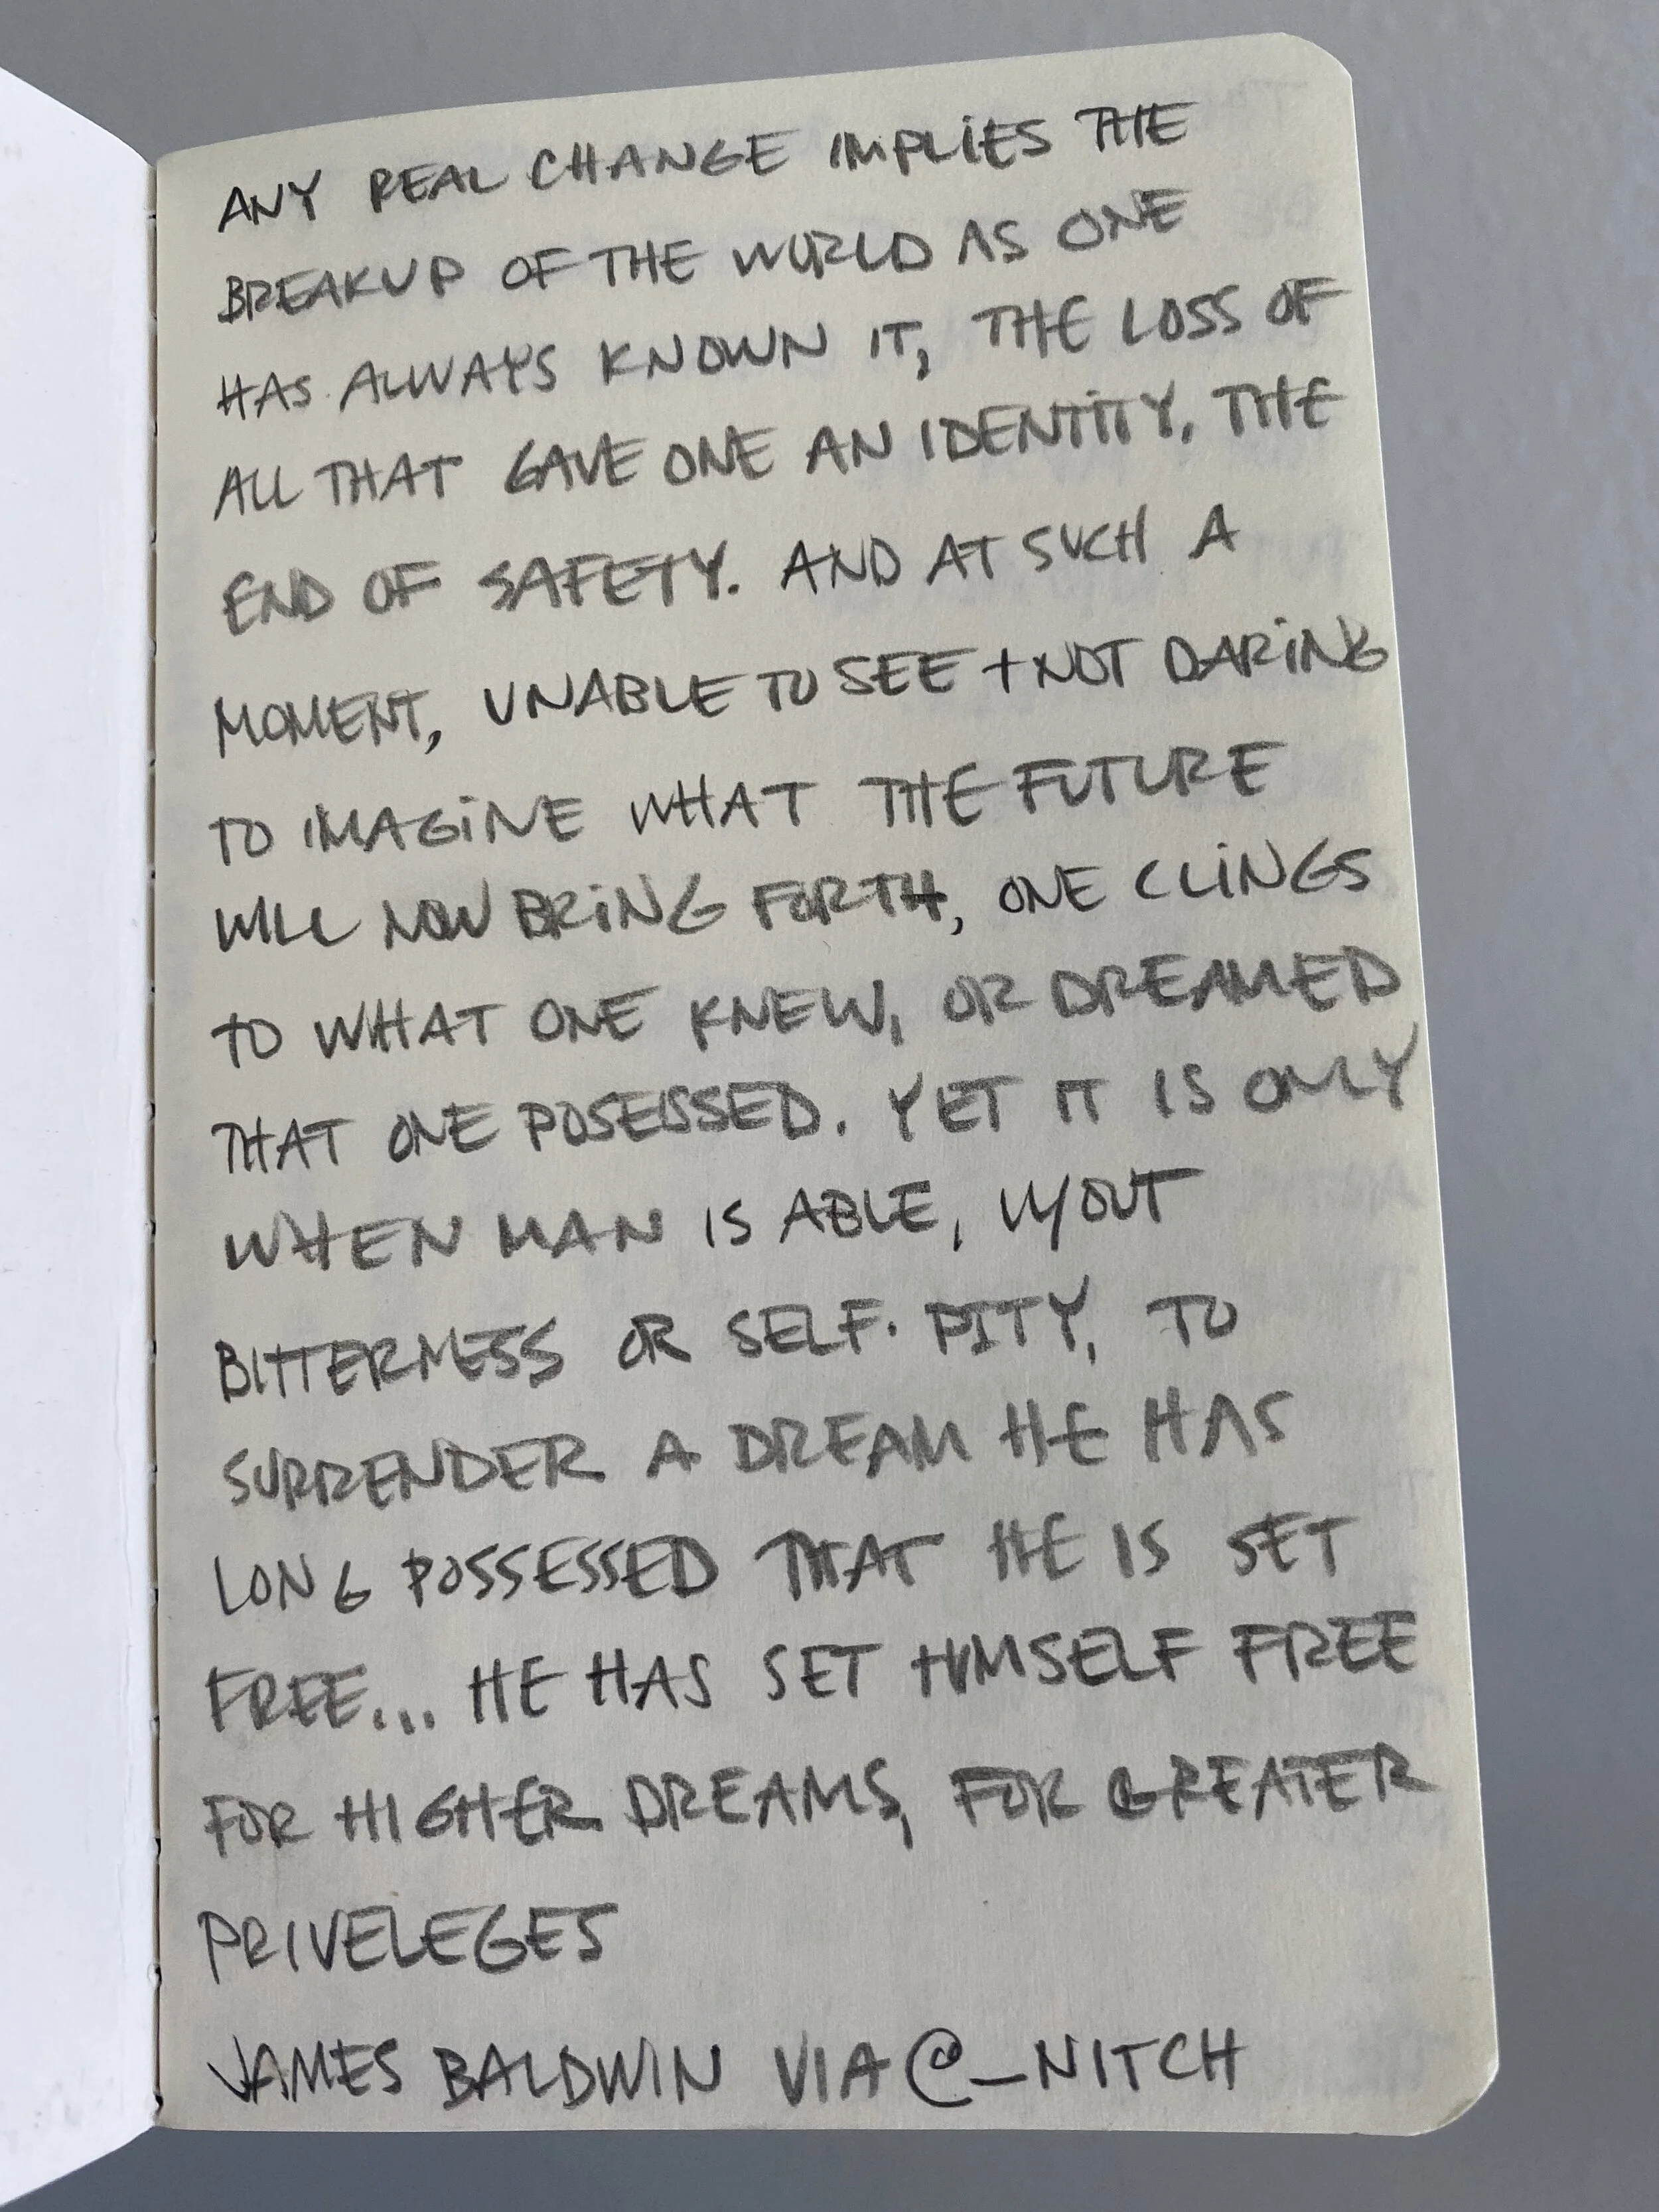 ANY REAL CHANGE IMPLIES THE
BREAKUP OF THE WORLD AS ONE
HAS ALWAYS KNOWN IT, THE LOSS OF
ALL THAT GAVE ONE AN IDENTITY, THE
END OF SAFETY. AND AT SUCH A
MOMENT, UNABLE TO SEE + NOT DARING
TO IMAGINE WHAT THE FUTURE
WILL NOW BRING FORTH, ONE CLINGS
TO WHAT ONE KNEW, OR DREAMED
THAT ONE POSESSED. YET IT IS ONLY
WHEN MAN IS ABLE, W/OUT
BITTERNESS OR SELF-PITY, TO
SURRENDER A DREAM HE HAS
LONG POSSESSED THAT HE IS SET
FREE... HE HAS SET HIMSELF FREE
FOR HIGHER DREAMS, FOR GREATER
PRIVELEGES
JAMES BALDWIN VIA @_NITCH